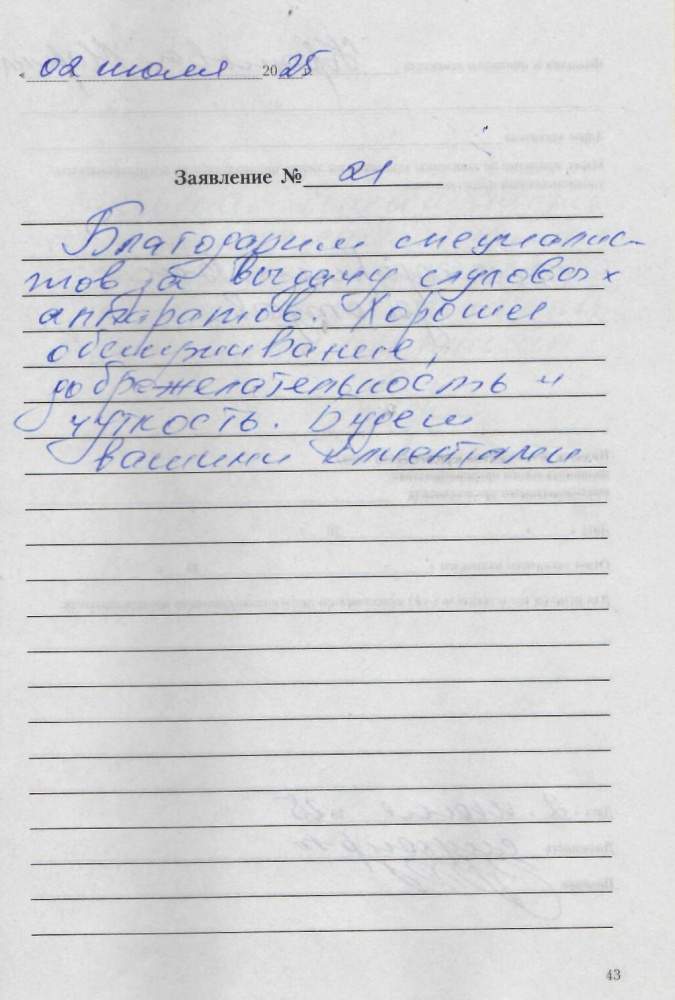 02 июля 2025
Заявление № 21
Благодарим специалис-
тов за выдачу слуховых
аппаратов. Хорошее
обслуживание,
доброжелательность и
чуткость. Будем
вашими клиентами.
43